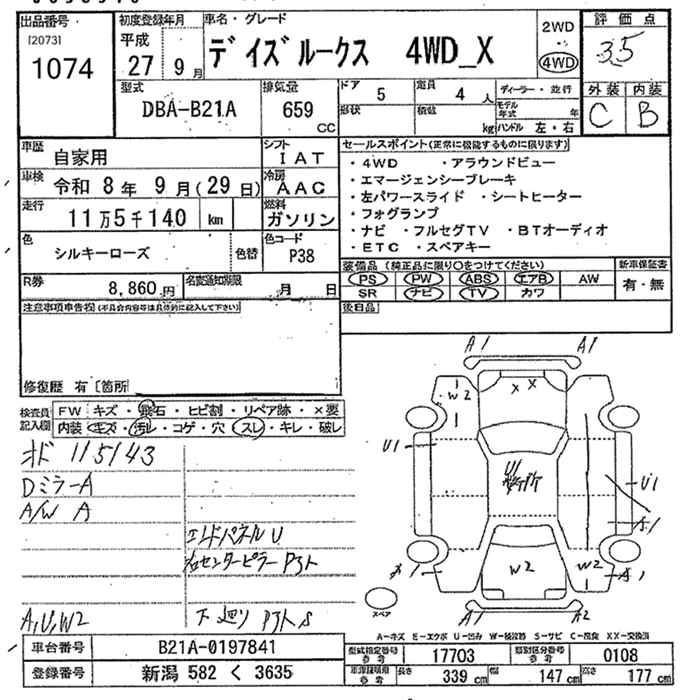 出品番号
[2073]
1074
初度登録年月
平成
27 9月
車名・グレード
デイズルークス 4WD_X
2WD
4WD
評価点
3.5
外装 内装
C B
型式
DBA-B21A
排気量
659
CC
ドア
5
定員
4 人
形状
積載
kg
ディーラー・並行
モデル年式 年
ハンドル 左・右
車歴
自家用
シフト
IAT
車検
令和 8年 9月(29日)
冷房
AAC
走行
11万5千140 km
燃料
ガソリン
色
シルキーローズ
色替
色コード
P38
R券
8,860円
名変通知期限
月 日
セールスポイント(正常に機能するものに限ります)
・4WD ・アラウンドビュー
・エマージェンシーブレーキ
・左パワースライド ・シートヒーター
・フォグランプ
・ナビ ・フルセグTV ・BTオーディオ
・ETC ・スペアキー
装備品(純正品に限り○をつけてください)
PS PW ABS エアB AW
SR ナビ TV カワ
新車保証書
有・無
注意事項申告欄(不具合内容等は具体的に記入して下さい)
後日品
修復歴 有〔箇所
検査員記入欄
FW キズ・飛石・ヒビ割・リペア跡・×要
内装 キズ・汚レ・コゲ・穴・スレ・キレ・破レ
オド 115143
Dミラー A
A/W A
エンドパネル U
右センターピラー Pヌト
A,U,W2
下廻り Pヌト,S
A1
A1
W2
X X
U1
U1
U1
A1
W2
W2
A1
A1
A2
スペア
A-キズ E-エクボ U-凹み W-板波跡 S-サビ C-腐食 XX-交換済
車台番号
B21A-0197841
登録番号
新潟 582 く 3635
型式指定番号
参考
17703
類別区分番号
参考
0108
車庫証明用
参考
長さ
339 cm
幅
147 cm
高さ
177 cm